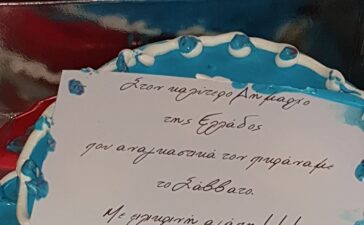 Στον καλύτερο Δήμαρχο
της Ελλάδος
που αναγκαστικά τον ψηφίσαμε
το Σάββατο.
Με ειλικρινή αγάπη!!!